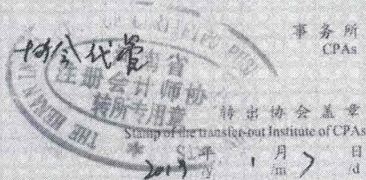 事务所
CPAs
协会代管
南省
注册会计师协
转所专用章
THE HENAN
转出协会盖章
Stamp of the transfer-out Institute of CPAs
年 月 日
/y /m /d